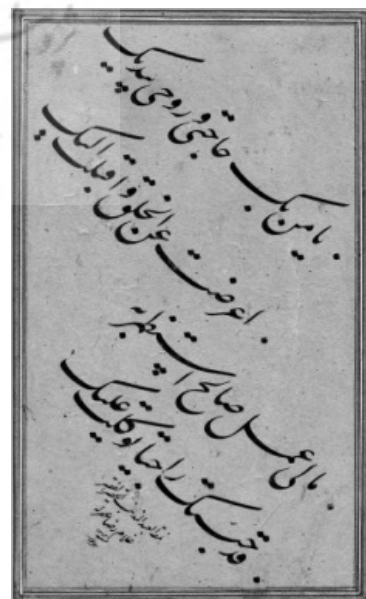 یا من بک حاجتی و روحی بیدیک
اعرضت عن الخلق و اقبلت الیک
مالی عمل صالح استظهر به
قد جئتک راجیا توکلت علیک